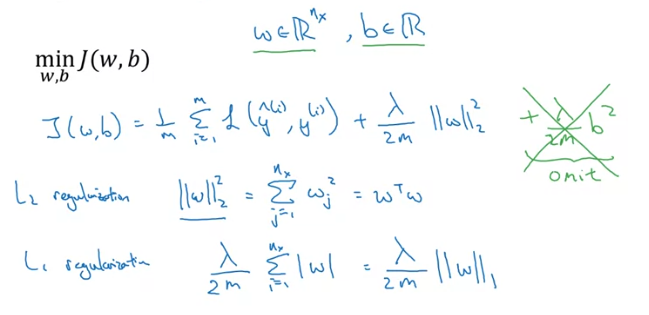 w ∈ ℝ^{n_x} , b ∈ ℝ
min J(w, b)
w,b
J(w,b) = 1/m ∑_{i=1}^{m} ℒ(ŷ^{(i)}, y^{(i)}) + λ/2m ||w||_2^2
+ λ/2m b^2
omit
L_2 regularization ||w||_2^2 = ∑_{j=1}^{n_x} w_j^2 = w^T w
L_1 regularization λ/2m ∑_{i=1}^{n_x} |w| = λ/2m ||w||_1